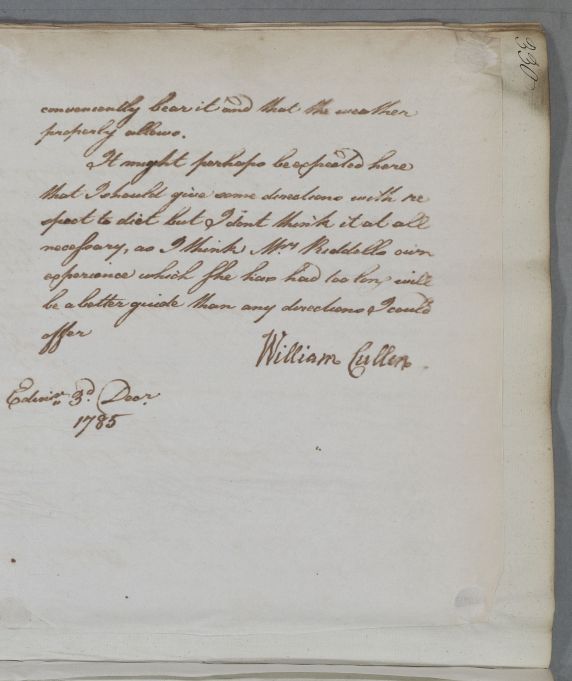 330
conveniently bear it and that the weather
properly allows.
It might perhaps be expected here
that I should give some directions with re
spect to diet but I dont think it at all
necessary, as I think Mrs Riddells own
experience which she has had too long will
be a better guide than any directions I could
offer
William Cullen
Edinr. 3d. Decr.
1785